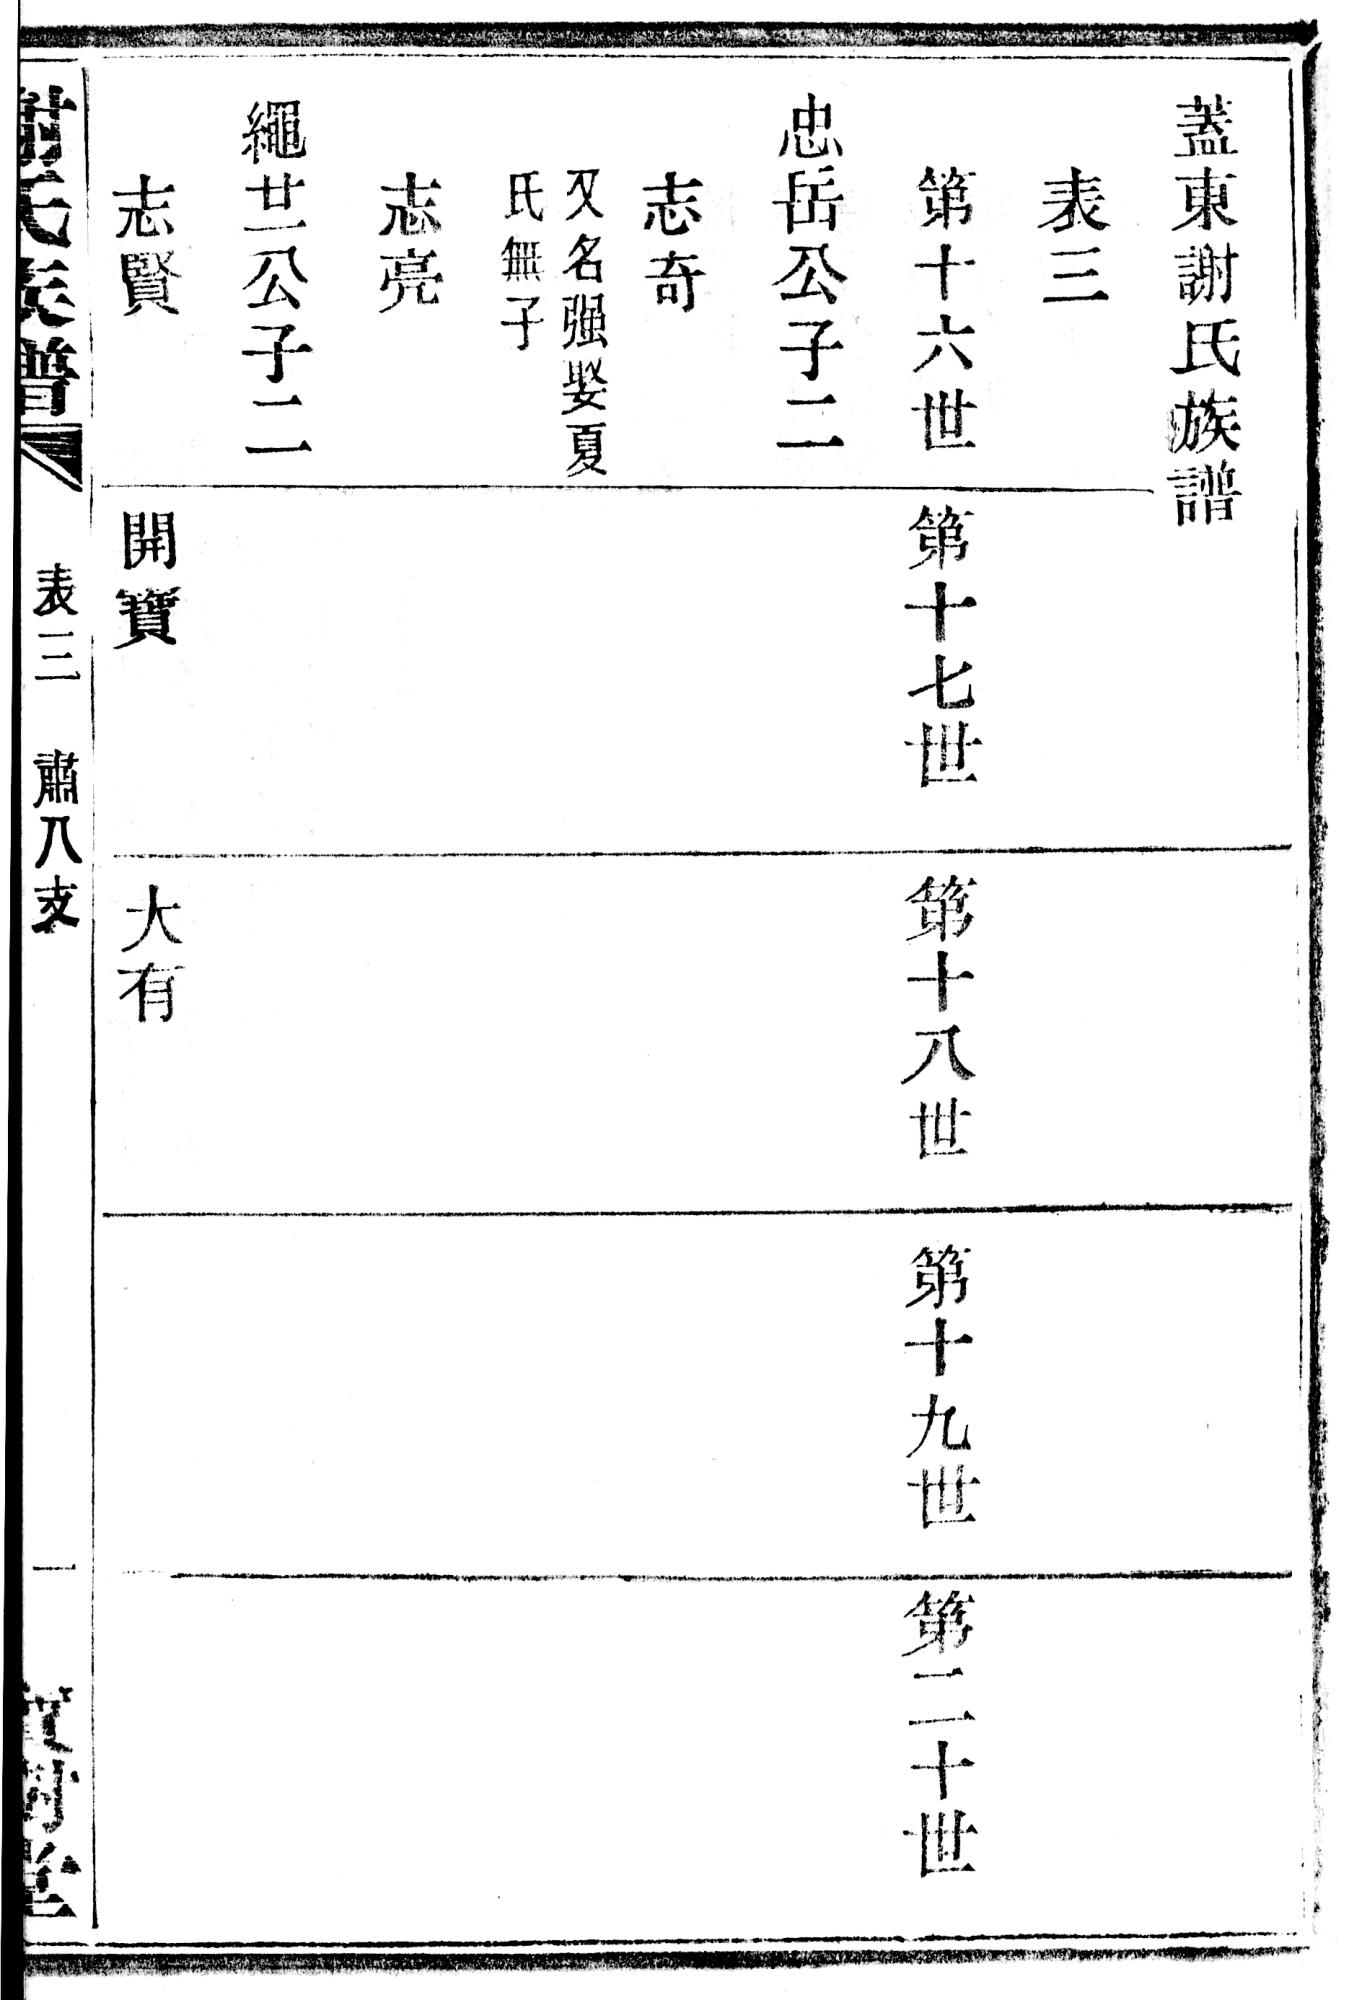 蓋東謝氏族譜
表三
第十六世
第十七世
第十八世
第十九世
第二十世
忠岳公子二
志奇
又名强娶夏
氏無子
志亮
繩廿一公子二
志賢
開寶
大有
謝氏族譜
表三 肅八支
一
寶樹堂